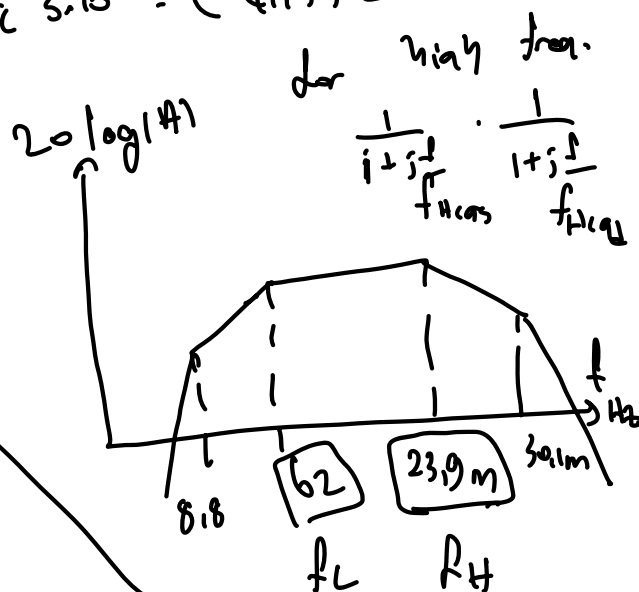 for high freq.
20 log|A|
1/(1+j f/fHcas) · 1/(1+j f/fHcad)
f
Hz
8,8
62
23,9m
30,1m
fL
fH